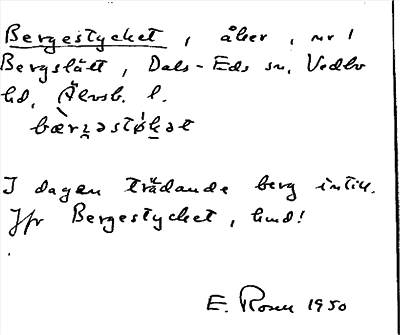 Bergestycket, åker, nr 1
Bergslätt, Dals-Eds sn, Vedbo
hd, Älvsb. l.
I dagen trädande berg intill.
Jfr Bergestycket, hmd!
E. Rosen 1950